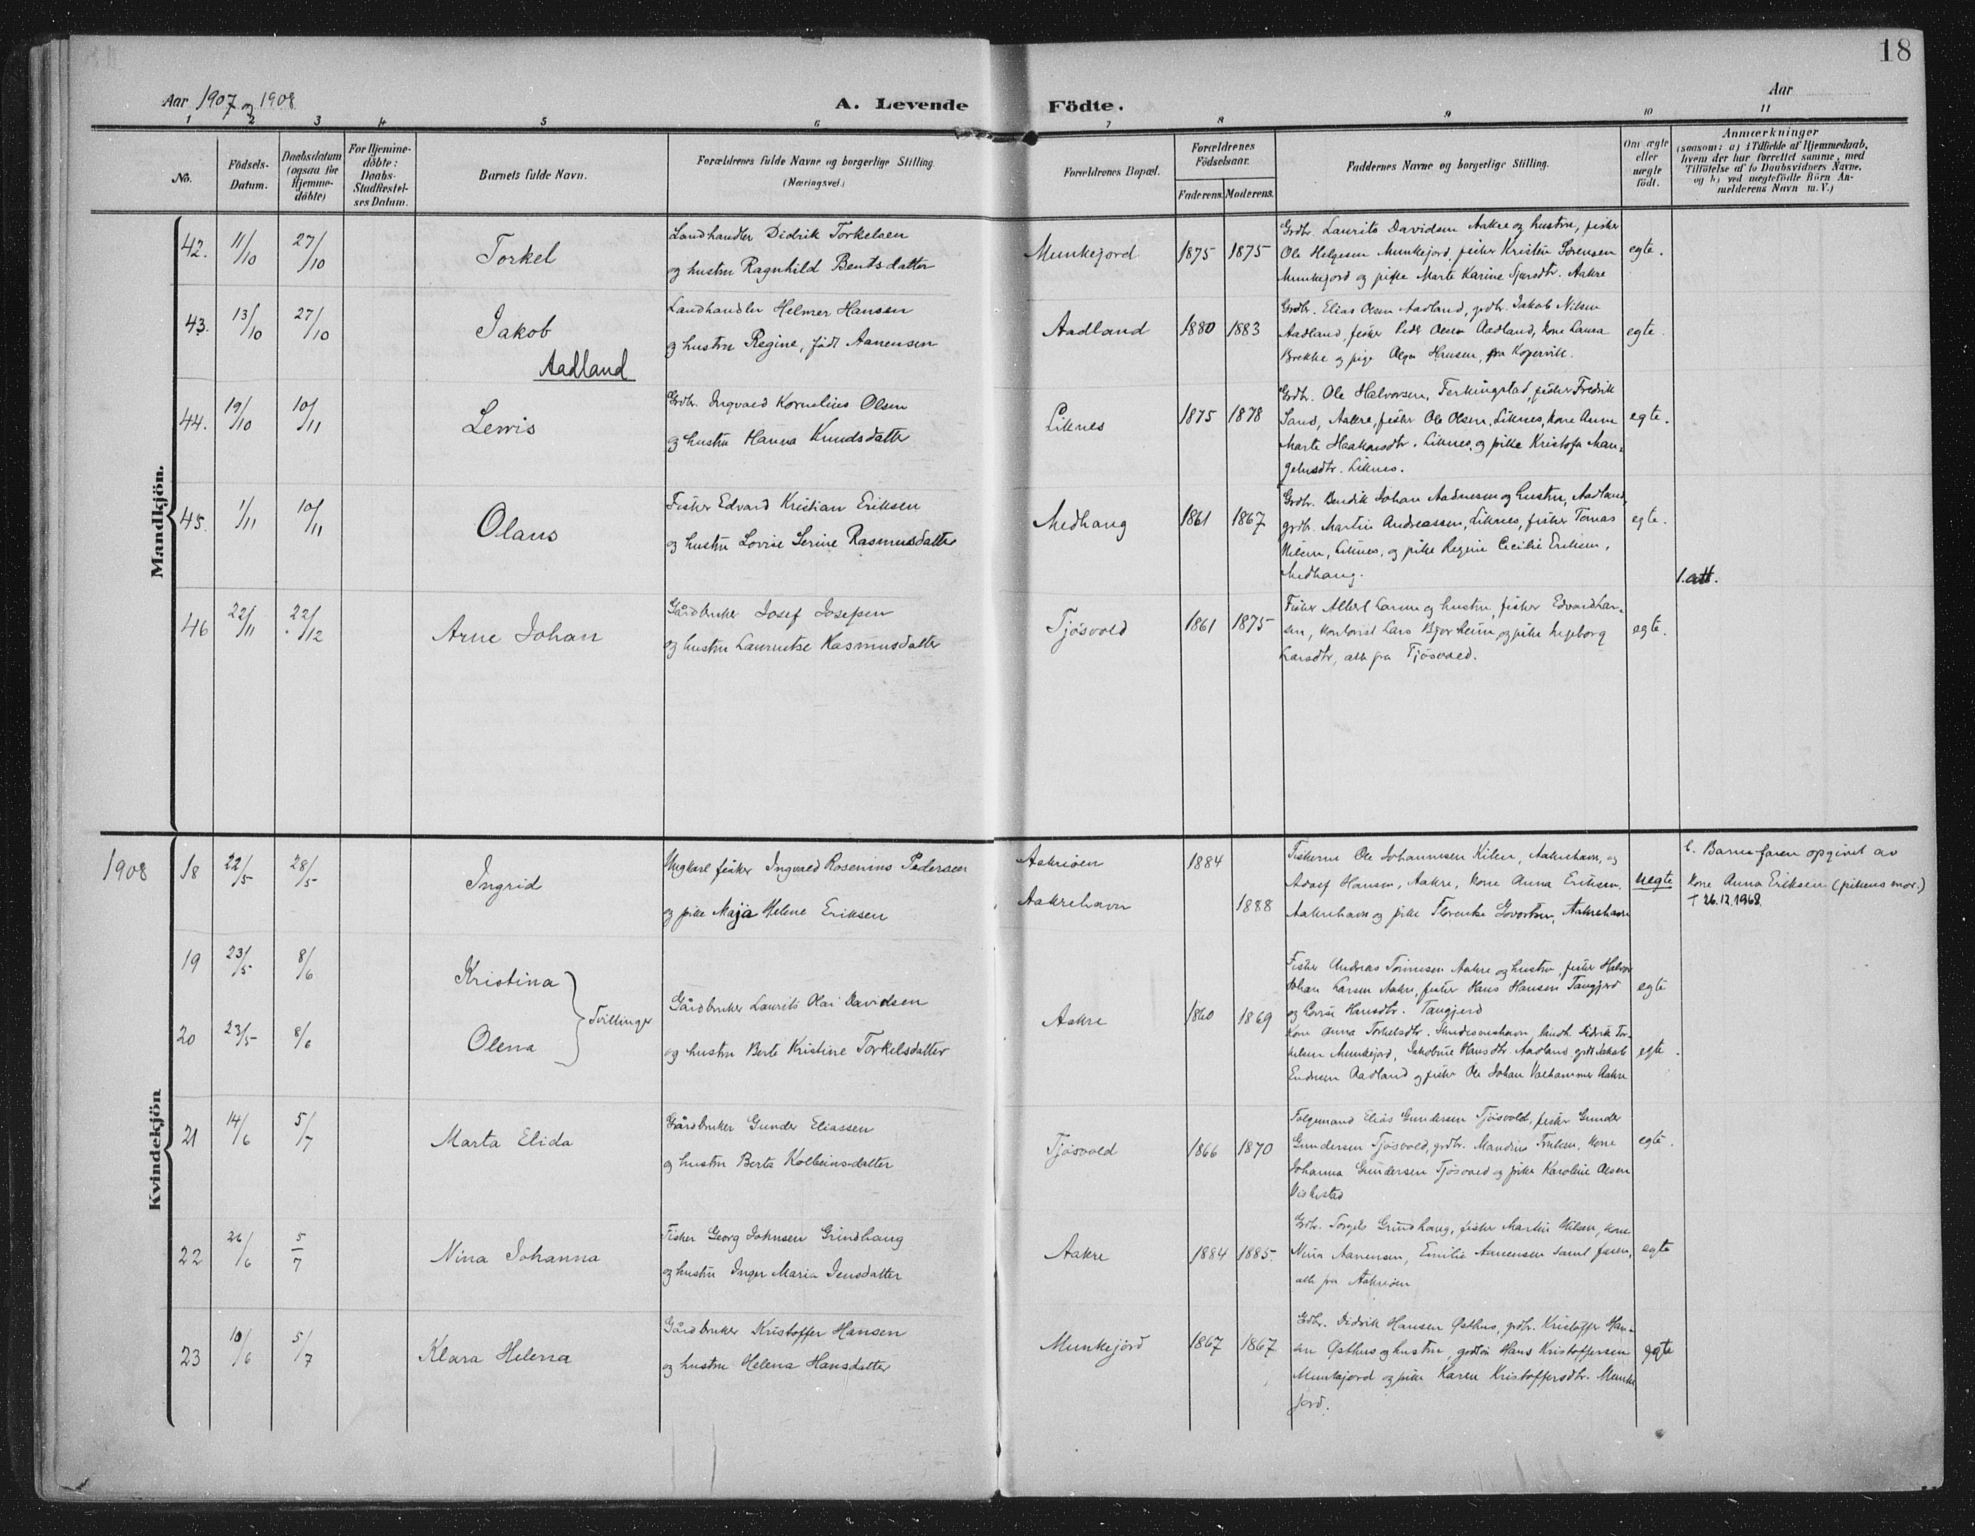 18
Aar 1907 og 1908
A. Levende Födte.
Aar
1 2 3 4 5 6 7 8 9 10 11
No.
Födsels-Datum.
Daabsdatum (ogsaa for Hjemme-döbte)
For Hjemme-döbte: Daabs-Stadfæstel-ses Datum.
Barnets fulde Navn.
Forældrenes fulde Navne og borgerlige Stilling. (Næringsvei.)
Forældrenes Bopæl.
Forældrenes Födselsaar.
Faderens. Moderens.
Faddernes Navne og borgerlige Stilling.
Om ægte eller uægte födt.
Anmærkninger
(saasom: a) i Tilfælde af Hjemmedaab, hvem der har forrettet samme, med Tilföielse af to Daabsvidners Navne, og b) ved uægtefödte Börn An-melderens Navn m. V.)
Mandkjön.
42. 11/10 27/10 Torkel
Landhandler Didrik Torkelsen
og hustru Ragnhild Bentsdatter
Munkejord 1875 1875
Grdbr. Laurits Davidsen Aakre og hustru, fisker
Ole Helgesen Munkejord, fisker Kristen Sörensen
Munkejord og pike Marte Karine Sjursdtr. Aakre
egte.
43. 13/10 27/10 Jakob
Aadland
Landhandler Helmer Hansen
og hustru Regine, född Aanensen
Aadland 1880 1883
Grdbr. Elias Olsen Aadland, grdbr. Jakob Nilsen
Aadland, fisker Peder Olsen Aadland, kone Laura
Brekke og pige Olga Hansen, fra Kopervik.
egte.
44. 19/10 10/11 Lewis
Grdbr. Ingvald Kornelius Olsen
og hustru Hanna Knudsdatter
Liknes 1875 1878
Grdbr. Ole Halvorsen, Ferkingstad, fisker Fredrik
Sand, Aakre, fisker Ole Olsen, Liknes, kone Anne
Marte Haakonsdtr. Liknes, og pike Kristofa Man-
gelusdtr. Liknes.
egte.
45. 1/11 10/11 Olaus
Fisker Edvard Kristian Eriksen
og hustru Lovise Serine Rasmusdatter
Medhaug 1861 1867
Grdbr. Bendik Johan Aadnesen og hustru, Aadland,
grdbr. Martin Andreassen, Liknes, fisker Tomas
Nilsen, Liknes, og pike Regine Cecilie Eriksen,
Medhaug.
egte.
1. att.
46 22/11 22/12 Arne Johan
Gårdbruker Josef Josefsen
og hustru Lauritse Rasmusdatter
Tjösvold 1861 1875
Fisker Albert Larsen og hustru, fisker Edvard Lar-
sen, kontorist Lars Bjorheim, og pike Ingeborg
Larsdtr, alle fra Tjösvold.
egte.
Kvindekjön
1908
18 22/5 28/5 Ingrid
Ungkarl fisker Ingvald Rosenius Pedersen
og pike Maja Helene Eriksen
Aakreöen 1884
Aakrehavn 1888
Fiskerne Ole Johannesen Kilen, Aakrehavn, og
Adolf Hansen, Aakre, kone Anna Eriksen,
Aakrehavn og pike Florentse Govertsen, Aakrehavn
uegte
b. Barnefaren opgivet av
kone Anna Eriksen (pikens mor.)
† 26.12.1968
19 23/5 8/6 Kristina
20 23/5 8/6 Olena
Tvillinger
Gårdbruker Laurits Olai Davidsen
og hustru Berte Kristine Torkelsdatter
Aakre 1860 1869
Fisker Andreas Tönnesen Aakre og hustru, fisker Halvor
Johan Larsen Aakre, fisker Hans Hansen Tangjerd
og Lovise Hansdtr. Tangjerd
egte
Kone Anna Torkelsdtr. Skudesneshavn, landh. Didrik Tor-
kelsen Munkejord, Jakobine Hansdtr. Aadland, grdbr Jakob
Endresen Aadland og fisker Ole Johan Valhammer Aakre
egte.
21 14/6 5/7 Marta Elida
Gårdbruker Gunder Eliassen
og hustru Berta Kolbeinsdatter
Tjösvold 1866 1870
Folgemand Elias Gundersen Tjösvold, fisker Gunder
Gundersen Tjösvold, grdbr. Mandius Trulsen, kone
Johanna Gundersen Tjösvold og pike Karoline Olsen
egte.
22 26/6 5/7 Nina Johanna
Fisker Georg Johnsen Grindhaug
og hustru Inger Maria Jensdatter
Aakre 1884 1885.
Grdbr. Torgels Grindhaug, fisker Martin Nilsen, kone
Nina Aanensen, Emilie Aanensen samt faren,
alle fra Aakreöen
egte
23 10/6 5/7 Klara Helena
Gårdbruker Kristoffer Hansen
og hustru Helena Hansdatter
Munkejord 1867 1867
Grdbr. Didrik Hansen Østhus, grdbr. Kristoffer Han-
sen Østhus og hustru, grdbr Hans Kristoffersen
Munkejord og pike Karen Kristoffersdtr. Munke
jord.
egte